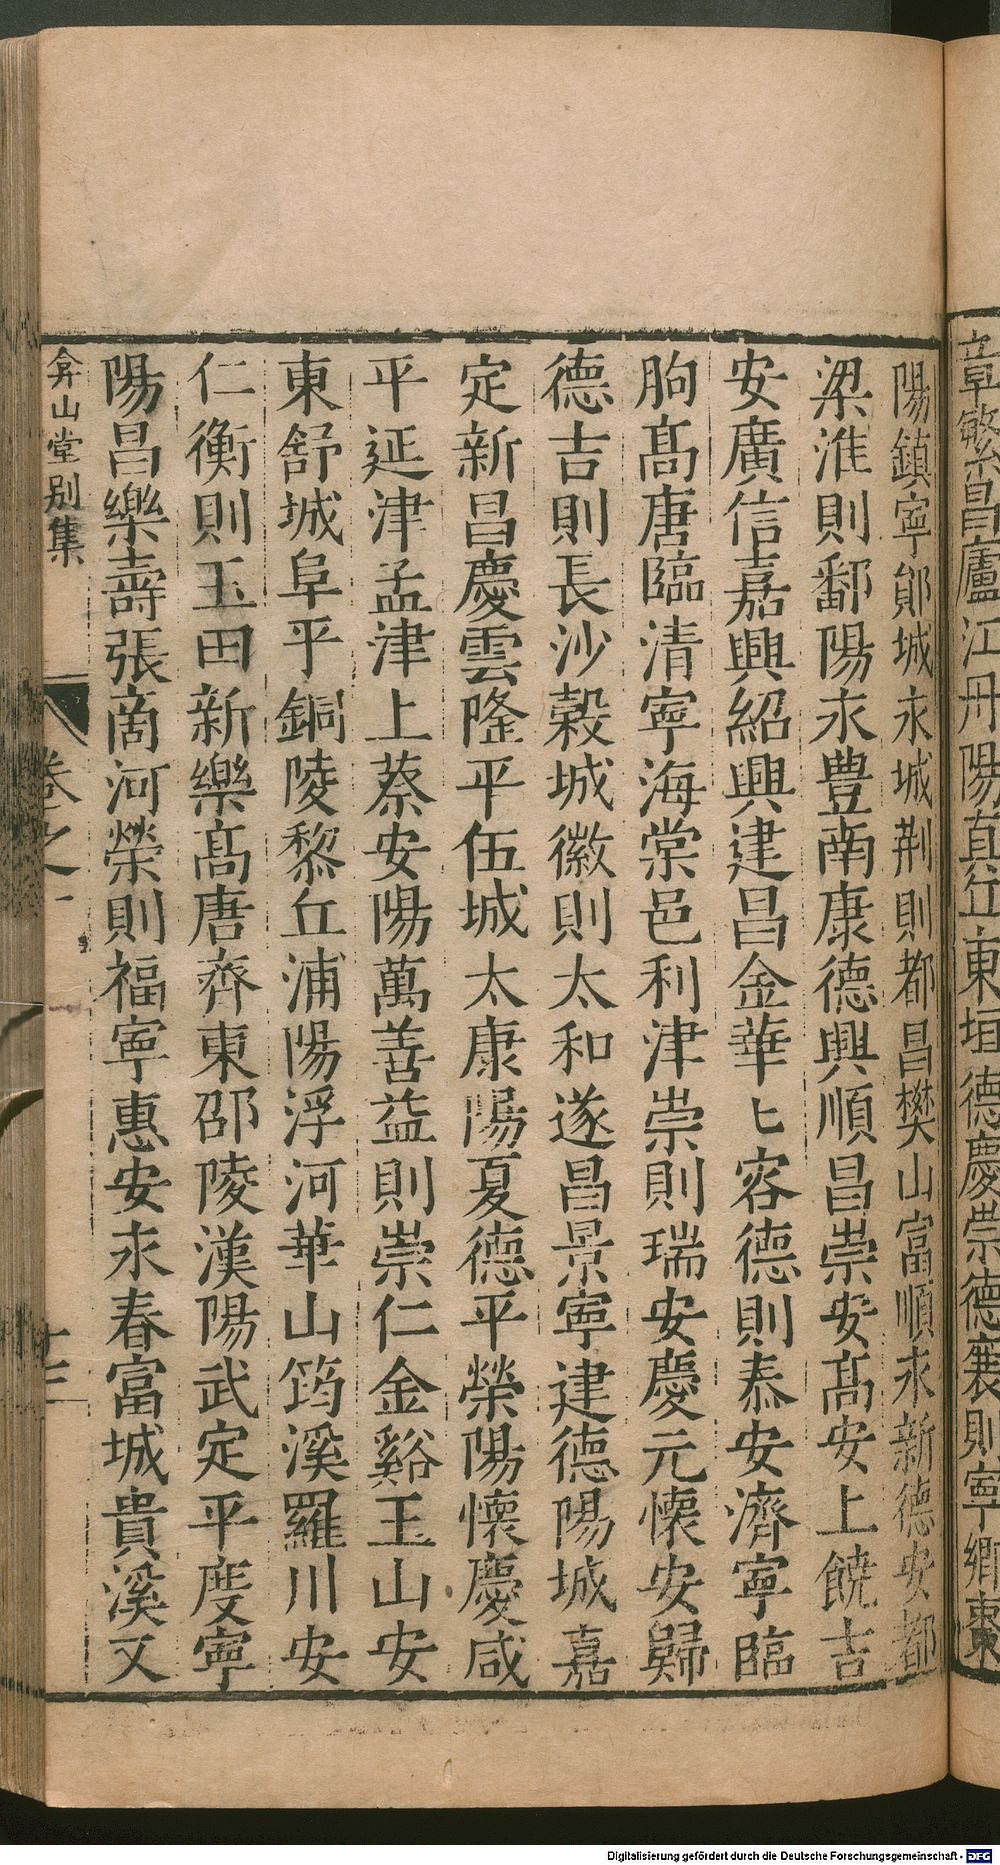 章繁昌廬江丹陽真丘東垣德慶崇德襄則寧鄉東
陽鎮寧鄖城永城荆則都昌樊山富順永新德安都
梁淮則鄱陽永豊南康德興順昌崇安髙安上饒吉
安廣信嘉興紹興建昌金華匕容德則泰安濟寧臨
朐髙唐臨清寧海棠邑利津崇則瑞安慶元懷安歸
德吉則長沙榖城徽則太和遂昌景寧建德陽城嘉
定新昌慶雲隆平伍城太康陽夏德平榮陽懷慶咸
平延津孟津上蔡安陽萬善益則崇仁金谿玉山安
東舒城阜平銅陵黎丘浦陽浮河華山筠溪羅川安
仁衡則玉田新樂髙唐齊東邵陵漢陽武定平度寧
陽昌樂壽張啇河榮則福寧惠安永春富城貴溪又
弇山堂别集
卷之一
十三
Digitalisierung gefördert durch die Deutsche Forschungsgemeinschaft - DFG